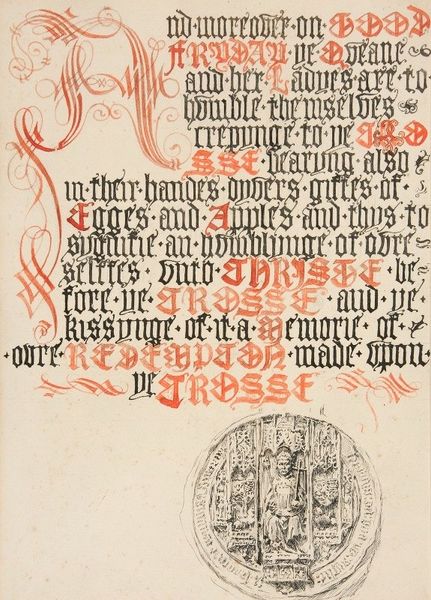 And · moreover · on · GOOD
FRYDAY · ye · Queane
and · her · Ladyes · are · to
humble · themselves
crepynge · to · ye · CRO
SSE bearyng · also
in · their · handes · dyvers · giftes · of ·
Egges · and · Apples · and · thus · to
sygnifie · an · humblynge · of · ovre
selffes · unto · CHRISTE · be
fore · ye · CROSSE · and · ye ·
kissynge · of · it · a · Memorie · of ·
· ovre · REDEMPTON · made · upon ·
ye CROSSE